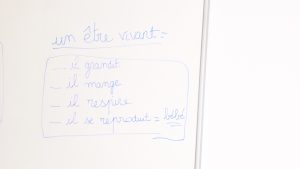 un être vivant =
— il grandit
— il mange
— il respire
— il se reproduit = bébé